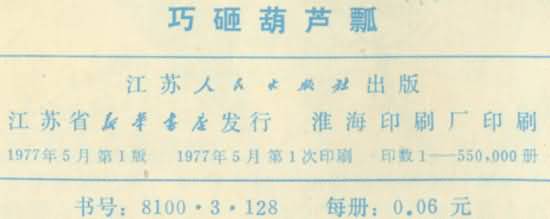 巧砸葫芦瓢
江苏人民出版社出版
江苏省新华书店发行 淮海印刷厂印刷
1977年5月第1版 1977年5月第1次印刷 印数1—550,000册
书号：8100·3·128 每册：0.06元